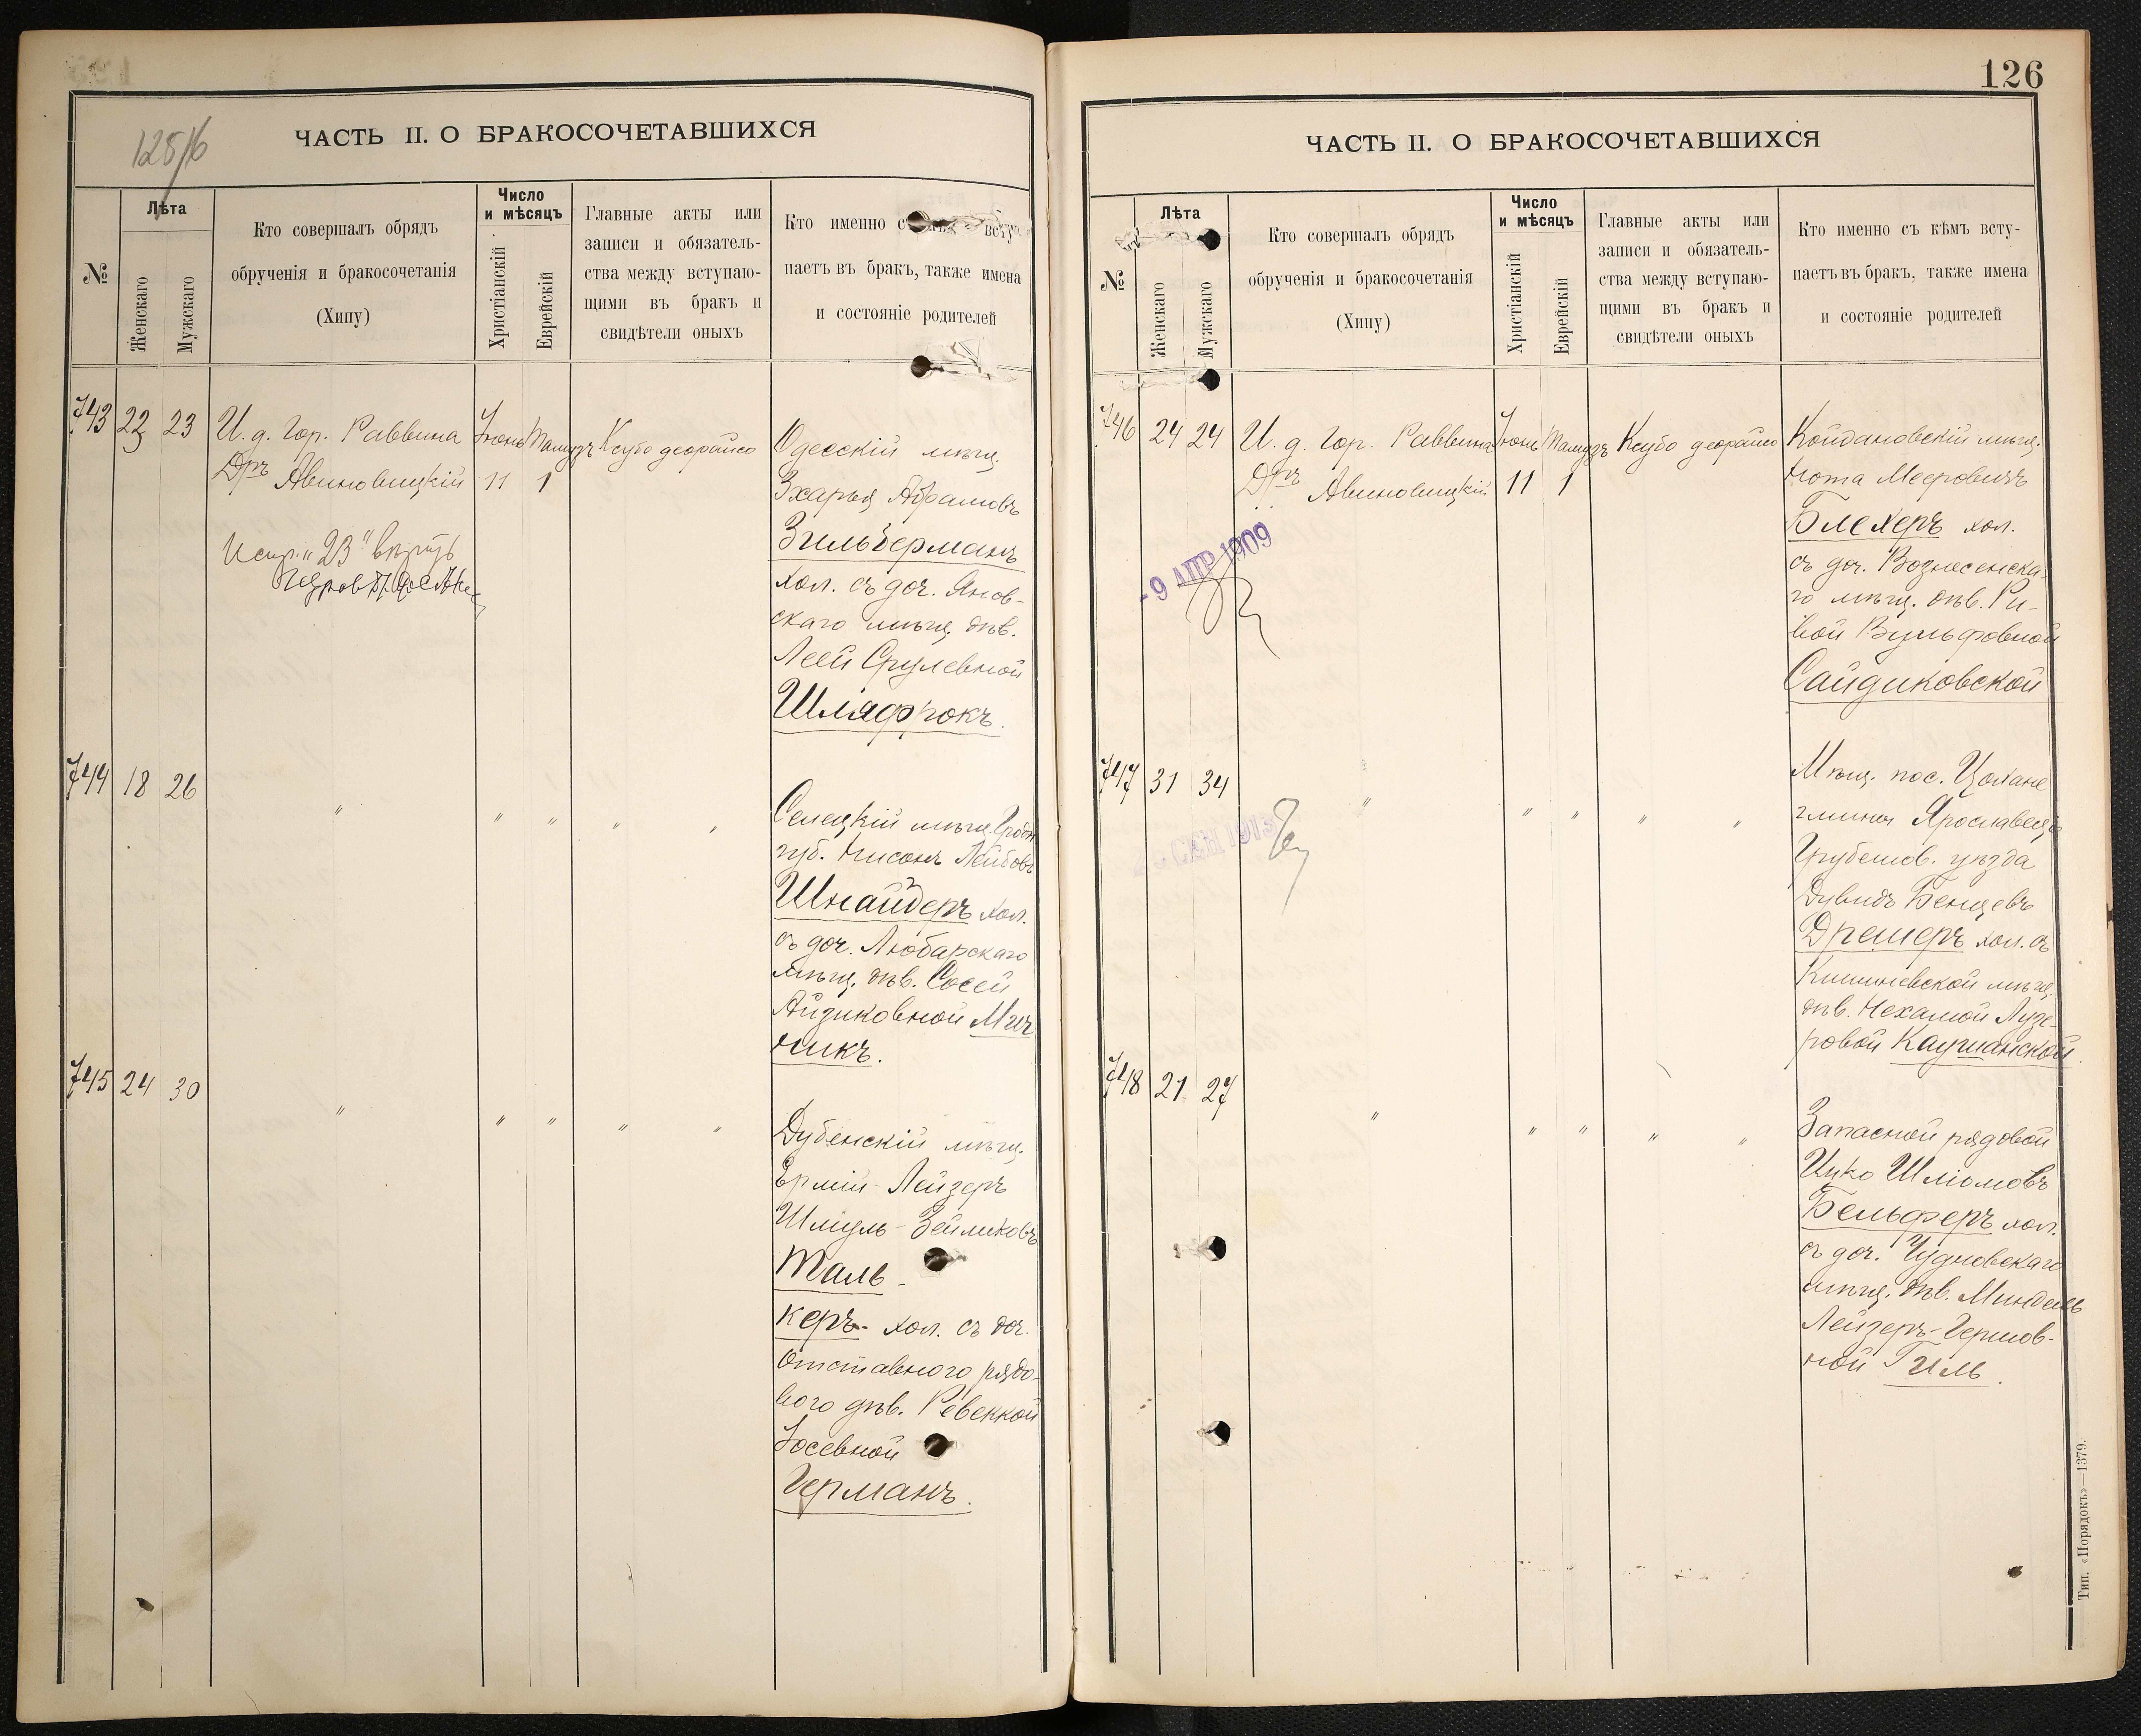 125/6
ЧАСТЬ II. О БРАКОСОЧЕТАВШИХСЯ
№
Лѣта
Женскаго
Мужскаго
Кто совершалъ обрядъ
обрученія и бракосочетанія
(Хипу)
Число
и мѣсяцъ
Христіанскій
Еврейскій
Главные акты или
записи и обязатель-
ства между вступаю-
щими въ бракъ и
свидѣтели оныхъ
Кто именно всту
паетъ въ бракъ, также имена
и состояніе родителей
743 22 23 И. д. Гор. Раввина Іюнь Тамузъ Ксубо деорайсо
Дръ Авиновицкій 11 1
Испр. "23" вѣрить
Одесскій мѣщ.
Зхарья Абрамовъ
Зильберманъ
хол. съ доч. Янов-
скаго мѣщ. дѣв.
Леей Срулевной
Шляфрокъ.
744 18 26 " " " " "
Селецкій мѣщ. Гродн
губ. Нисонъ Лейбовъ
Шнайдеръ хол.
съ доч. Любарскаго
мѣщ. дѣв. Сосей
Айзиковной
никъ.
745 24 30 " " " " "
Дубенскій мѣщ.
Ермій-Лейзеръ
Шмуль-Зейликовъ
Таль-
керъ- хол. съ доч.
Отставного рядо-
вого дѣв. Ревеккой
Іосевной
Германъ.
126
ЧАСТЬ II. О БРАКОСОЧЕТАВШИХСЯ
№
Лѣта
Женскаго
Мужскаго
Кто совершалъ обрядъ
обрученія и бракосочетанія
(Хипу)
Число
и мѣсяцъ
Христіанскій
Еврейскій
Главные акты или
записи и обязатель-
ства между вступаю-
щими въ бракъ и
свидѣтели оныхъ
Кто именно съ кѣмъ всту-
паетъ въ бракъ, также имена
и состояніе родителей
746 24 24 И. д. Гор. Раввина Іюнь Тамузъ Ксубо деорайсо
Дръ Авиновицкій 11 1
-9 АПР 1909
Койдановскій мѣщ.
Нота Мееровичъ
Блехеръ хол.
съ доч. Вознесенска-
го мѣщ. дѣв. Ри-
вой Вульфовной
Сайдиковской
747 31 34 " " " " "
СЕН 1913
Мѣщ. пос. Цохане
гмины Ярославецъ
Грубешов. уѣзда
Дувидъ Бенцевъ
Дрешеръ хол. съ
Кишиневской мѣщ.
дѣв. Нехамой Лузе-
ровой Каушанской.
748 21 27 " " " " "
Запасной рядовой
Ицко Шліомовъ
Бельферъ хол.
съ доч. Чудновскаго
мѣщ. дѣв. Миндель
Лейзеръ-Гершов-
ной Гиль.
Тип. «Порядокъ»—1379.